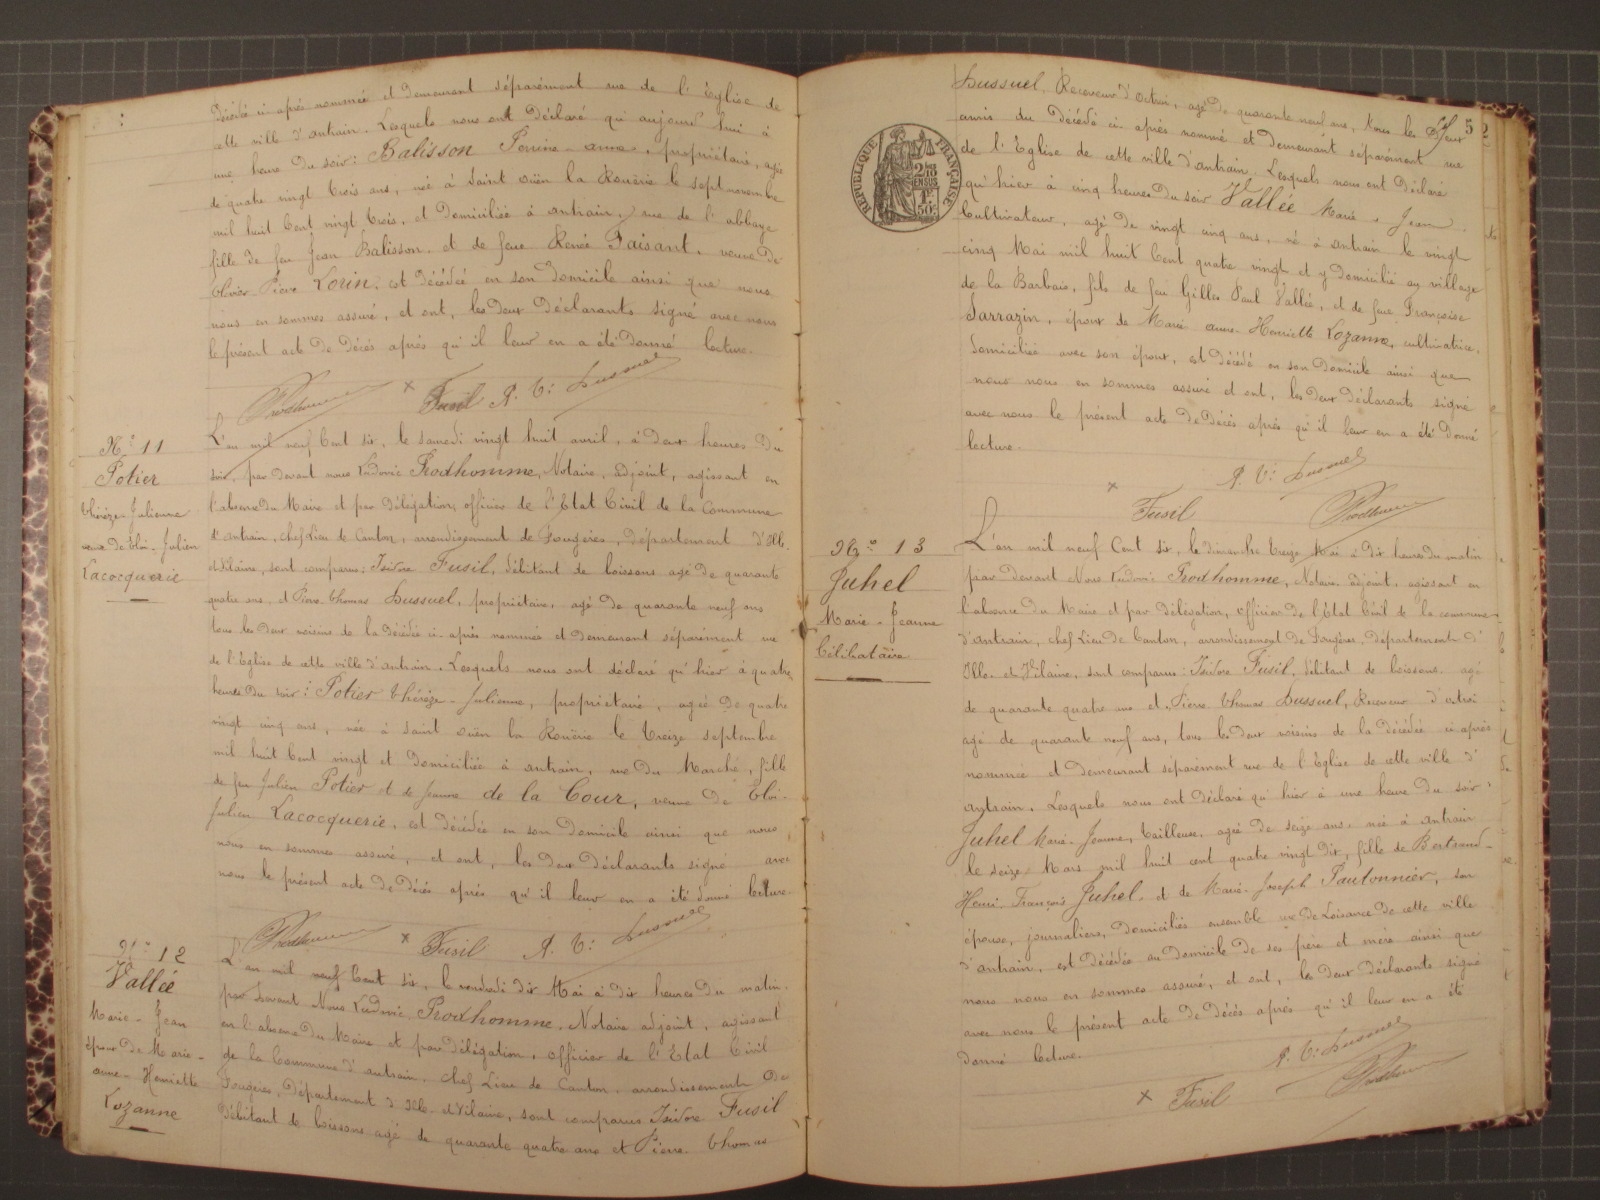 décédée ci-après nommée et demeurant séparément rue de l'Eglise de
cette ville d'antrain. Lesquels nous ont déclaré qu'aujourd'hui à
une heure du soir : Balisson Perrine-anne, propriétaire, agée
de quatre vingt trois ans, née à Saint ouën la Rouërie le sept novembre
mil huit cent vingt trois, et domiciliée à antrain, rue de l'abbaye
fille de feu Jean Balisson, et de feue Renée Paisant, veuve de
Pierre Lorin, est décédée en son domicile ainsi que nous
nous en sommes assuré, et ont, les deux déclarants signé avec nous
le présent acte de décès après qu'il leur en a été donné lecture.
Prodhomme x Fusil P. T: Dussuel
N° 11
Potier
thérèze-Julienne
veuve de Eloi-Julien
Lacocquerie
L'an mil neuf cent six, le samedi vingt huit avril, à deux heures du
soir, par devant nous Ludovic Prodhomme, Notaire, adjoint, agissant en
l'absence du Maire et par délégation, officier de l'Etat Civil de la Commune
d'antrain, chef Lieu de Canton, arrondissement de Fougères, département d'Ille-
et-Vilaine, sont comparus : Isidore Fusil, débitant de boissons agé de quarante
quatre ans, et Pierre Thomas Dussuel, propriétaire, agé de quarante neuf ans
tous les deux voisins de la décédée ci-après nommée et demeurant séparément rue
de l'Eglise de cette ville d'antrain. Lesquels nous ont déclaré qu'hier à quatre
heures du soir : Potier thérèze-Julienne, propriétaire, agée de quatre
vingt cinq ans, née à Saint ouën la Rouërie le treize septembre
mil huit cent vingt et domiciliée à antrain, rue du Marché, fille
de feu Julien Potier et de Jeanne de la Cour, veuve de Eloi-
Julien Lacocquerie, est décédée en son domicile ainsi que nous
nous en sommes assuré, et ont, les deux déclarants signé avec
nous le présent acte de décès après qu'il leur en a été donné lecture.
Prodhomme x Fusil P. T: Dussuel
N° 12
Vallée
Marie-Jean
époux de Marie-
anne-Henriette
Lozanne
L'an mil neuf cent six, le vendredi dix Mai à dix heures du matin.
par devant Nous Ludovic Prodhomme, Notaire adjoint, agissant
en l'absence du Maire et par délégation, officier de l'Etat Civil
de la Commune d'antrain, chef Lieu de Canton, arrondissement de
Fougères, Département d'Ille-et-Vilaine, sont comparus Isidore Fusil
débitant de boissons agé de quarante quatre ans et Pierre Thomas
52
REPUBLIQUE FRANÇAISE
2/10
EN SUS
1F
50c
Dussuel, Receveur d'octroi, agé de quarante neuf ans, tous les deux
amis du décédé ci-après nommé et demeurant séparément rue
de l'Eglise de cette ville d'antrain. Lesquels nous ont déclaré
qu'hier à cinq heures du soir Vallée Marie-Jean.
Cultivateur, agé de vingt cinq ans, né à antrain le vingt
cinq Mai mil huit cent quatre vingt et y domicilié au village
de la Barbais, fils de feu Gilles Paul Vallée, et de feue Françoise
Sarrazin, époux de Marie anne-Henriette Lozanne, cultivatrice,
domiciliée avec son époux, est décédé en son domicile ainsi que
nous nous en sommes assuré et ont, les deux déclarants signé
avec nous le présent acte de décès après qu'il leur en a été donné
lecture.
P. T: Dussuel
x Fusil Prodhomme
N° 13
Juhel
Marie-Jeanne
Célibataire
L'an mil neuf Cent six, le dimanche treize Mai à dix heures du matin
par devant Nous Ludovic Prodhomme, Notaire adjoint, agissant en
l'absence du Maire et par délégation, officier de l'Etat Civil de la commune
d'antrain, chef Lieu de Canton, arrondissement de Fougères, département d'
Ille-et-Vilaine, sont comparus : Isidore Fusil, débitant de boissons agé
de quarante quatre ans et Pierre Thomas Dussuel, Receveur d'octroi
agé de quarante neuf ans, tous les deux voisins de la décédée ci-après
nommée et demeurant séparément rue de l'Eglise de cette ville d'
antrain. Lesquels nous ont déclaré qu'hier à une heure du soir
Juhel Marie-Jeanne, tailleuse, agée de seize ans, née à antrain
le seize Mars mil huit cent quatre vingt dix, fille de Bertrand-
Henri-François Juhel, et de Marie-Joseph Pautonnier, son
épouse, journaliers, domiciliés ensemble rue de Loisance de cette ville
d'antrain, est décédée au domicile de ses père et mère ainsi que
nous nous en sommes assuré, et ont, les deux déclarants signé
avec nous le présent acte de décès après qu'il leur en a été
donné lecture.
P. T: Dussuel
x Fusil Prodhomme